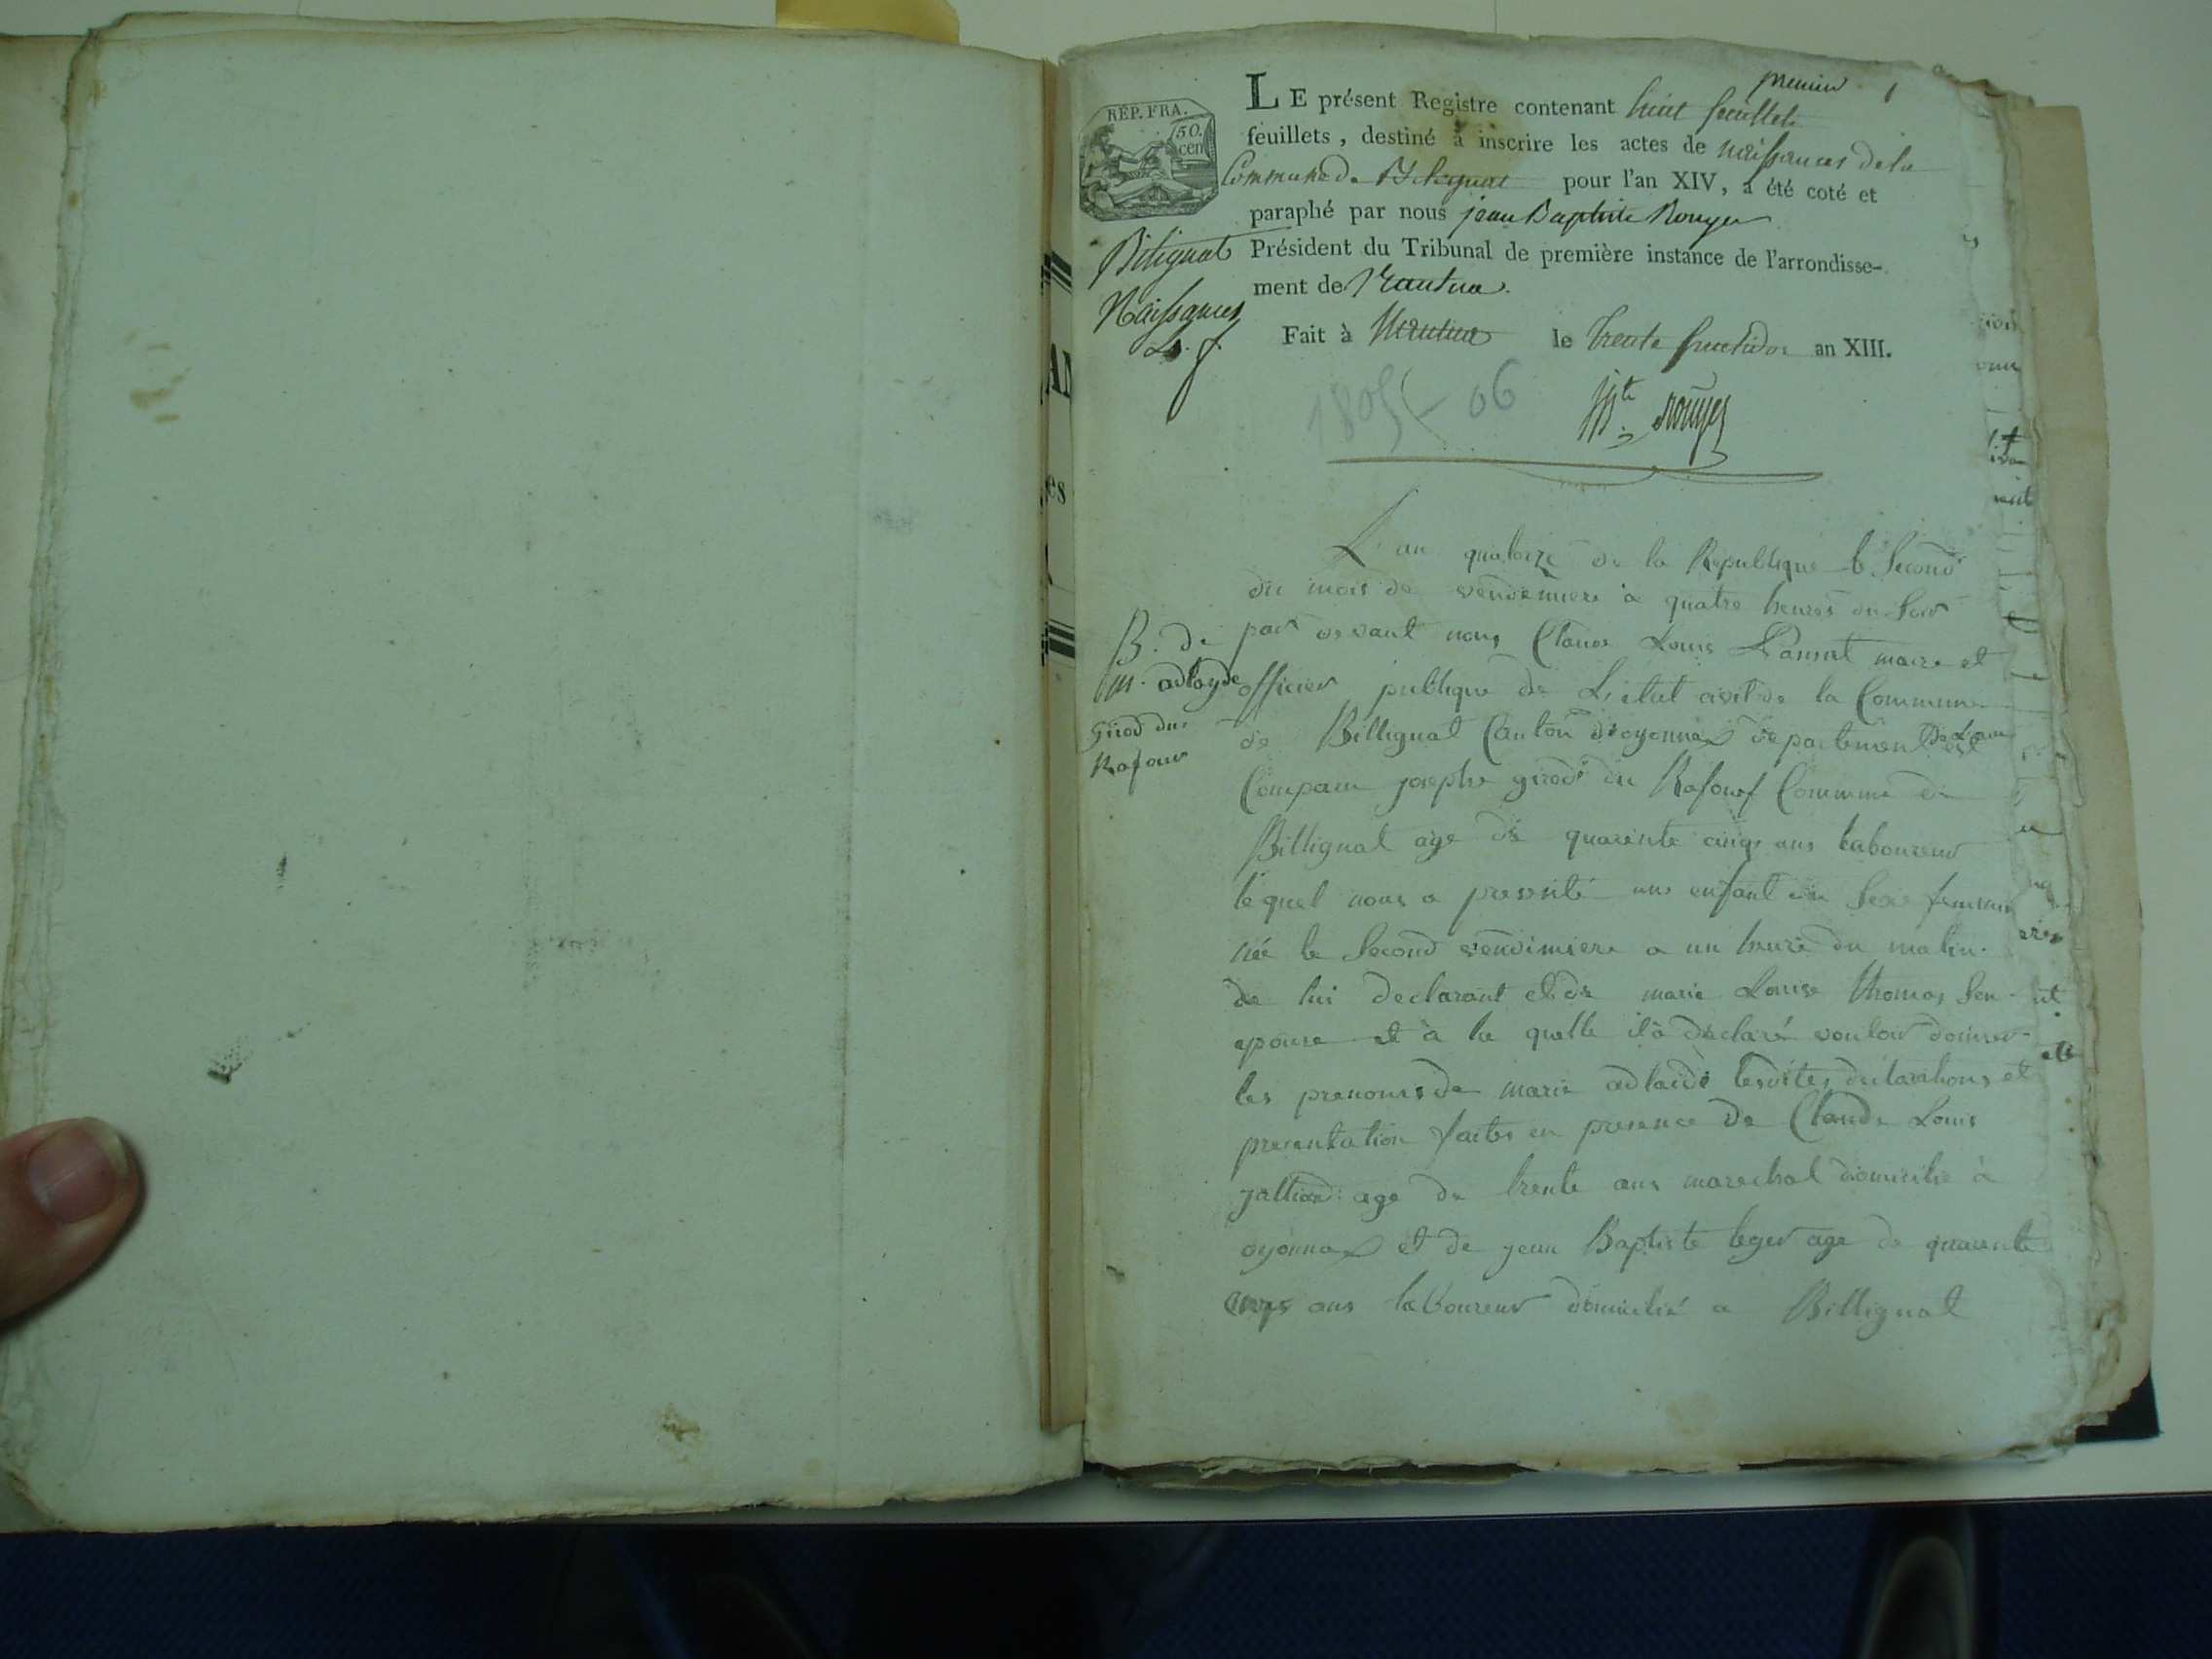 premier 1
REP. FRA.
50.
cen
LE présent Registre contenant huit feuillets
feuillets, destiné à inscrire les actes de naissances de la
Commune de pour l'an XIV, a été coté et
paraphé par nous jean Baptiste Rouyer
Président du Tribunal de première instance de l'arrondisse-
ment de Nantua.
Bilignat
Naissances
Fait à Nantua le trente fructidor an XIII.
1805 - 06
Bte rouyer
L'an quatorze de la Republique le Second
du mois de vendemiere à quatre heures du Soir
par devant nous Claude Louis maire et
officier publique de L'état civil de la Commune
de Billignat Canton d'oyonnax département De L'ain est
Comparu josephe girod du Rafour Commune de
Billignat age de quarente cinq ans laboureur
lequel nous a presenté une enfant du Sexe feminin
née le Second vendimiere a un heure du matin.
de lui declarant et de marie Louise thomas Son
epouse et à la quelle il à déclaré vouloir donner
les prenoms de marie adlaide lesdites déclarations et
presentation faites en presence de Claude Louis
age de trente ans marechal domicilié à
oyonnax et de jean Baptiste leger age de quarente
cinq ans laboureur domicilié a Billignat
B. de
m. adlayde
Girod du
Rafour